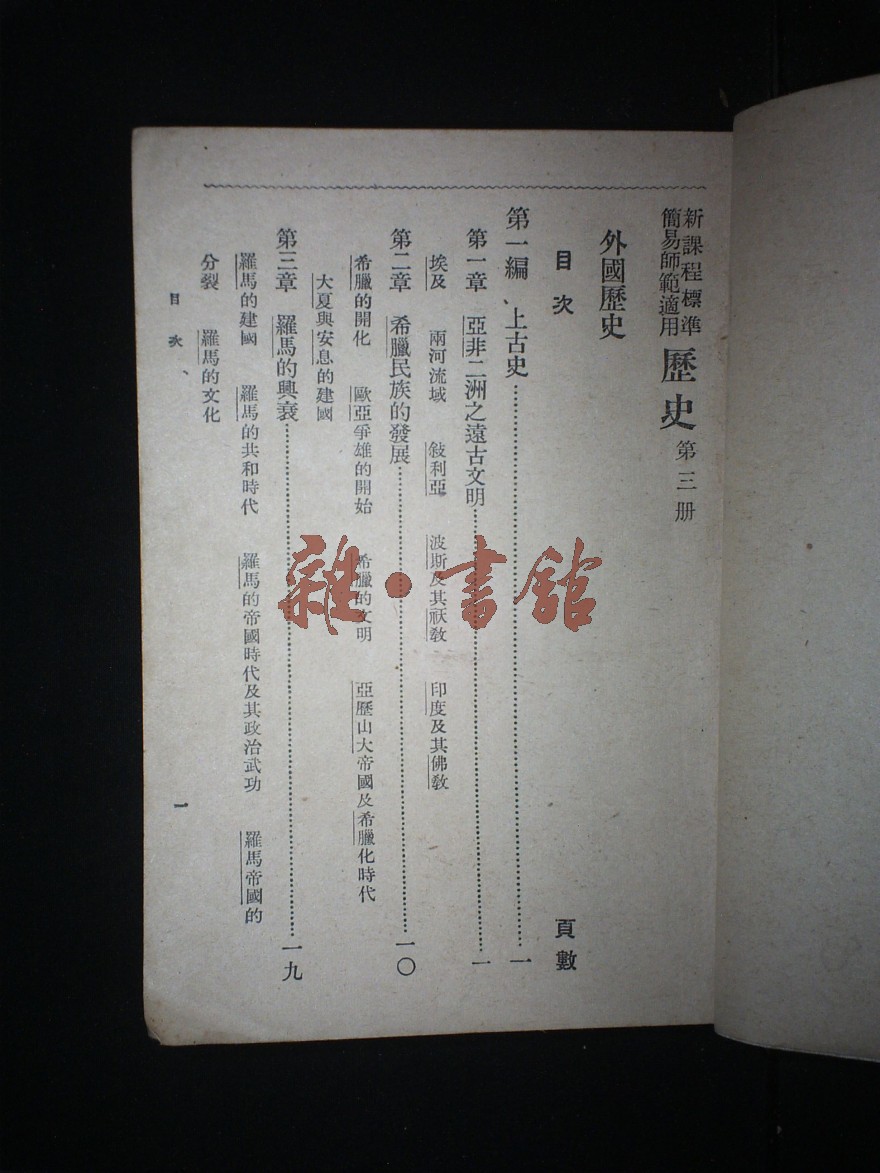 新課程標準
簡易師範適用
歷史 第三册
外國歷史
目次 頁數
第一編 上古史……一
第一章 亞非二洲之遠古文明……一
埃及 兩河流域 敍利亞 波斯及其祅教 印度及其佛教
第二章 希臘民族的發展……一〇
希臘的開化 歐亞爭雄的開始 希臘的文明 亞歷山大帝國及希臘化時代
大夏與安息的建國
第三章 羅馬的興衰……一九
羅馬的建國 羅馬的共和時代 羅馬的帝國時代及其政治武功 羅馬帝國的
分裂 羅馬的文化
目次 一
雜·書館